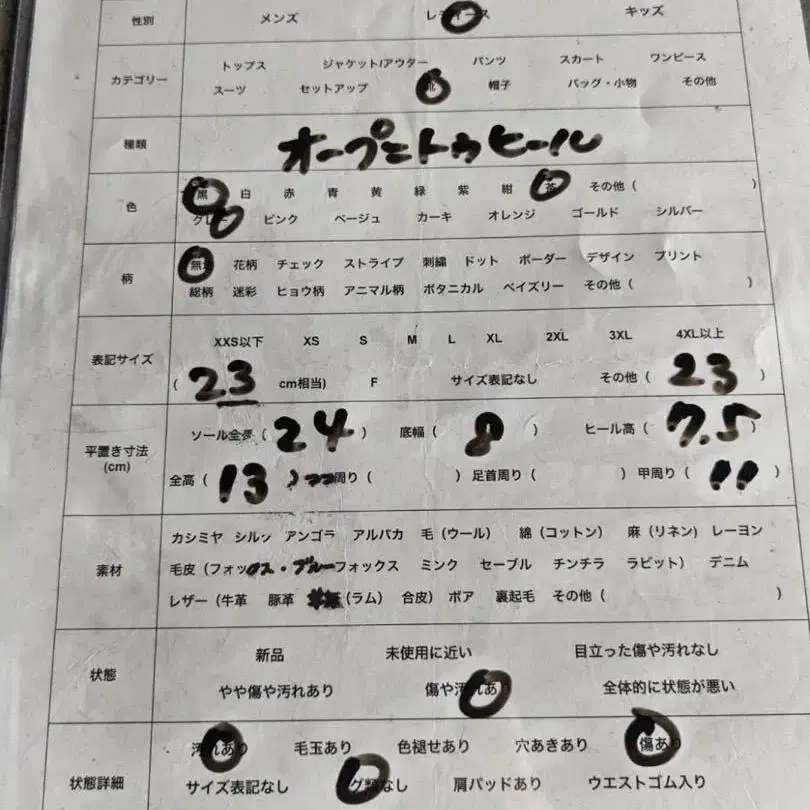 性別 メンズ レディース キッズ
カテゴリー トップス ジャケット/アウター パンツ スカート ワンピース
スーツ セットアップ 靴 帽子 バッグ・小物 その他
種類 オープントゥヒール
色 黒 白 赤 青 黄 緑 紫 紺 茶 その他 ( )
グレー ピンク ベージュ カーキ オレンジ ゴールド シルバー
柄 無地 花柄 チェック ストライプ 刺繍 ドット ボーダー デザイン プリント
総柄 迷彩 ヒョウ柄 アニマル柄 ボタニカル ペイズリー その他 ( )
表記サイズ XXS以下 XS S M L XL 2XL 3XL 4XL以上
( 23 cm相当) F サイズ表記なし その他 ( 23 )
平置き寸法 (cm) ソール全長 ( 24 ) 底幅 ( 8 ) ヒール高 ( 7.5 )
全高 ( 13 ) 周り ( ) 足首周り ( ) 甲周り ( 11 )
素材 カシミヤ シルク アンゴラ アルパカ 毛 (ウール) 綿 (コットン) 麻 (リネン) レーヨン
毛皮 (フォックス・ブルーフォックス ミンク セーブル チンチラ ラビット) デニム
レザー (牛革 豚革 (ラム) 合皮) ボア 裏起毛 その他 ( )
状態 新品 未使用に近い 目立った傷や汚れなし
やや傷や汚れあり 傷や汚れあり 全体的に状態が悪い
状態詳細 汚れあり 毛玉あり 色褪せあり 穴あきあり 傷あり
サイズ表記なし グ類なし 肩パッドあり ウエストゴム入り